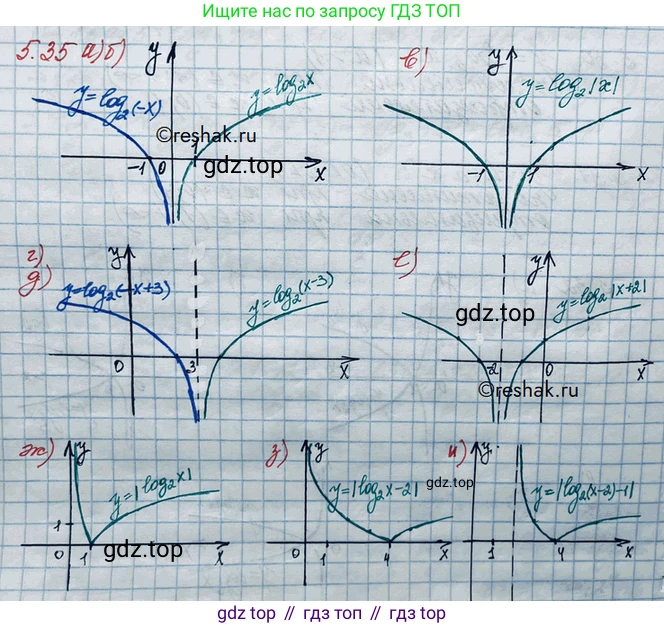 Ищите нас по запросу ГДЗ ТОП
5.35 а) б)
y
y=log₂(-x)
y=log₂x
©reshak.ru
gdz.top
-1 0 1 x
в)
y
y=log₂|x|
-1 1 x
г)
д)
y
y=log₂(-x+3)
y=log₂(x-3)
0 3 x
е)
y
y=log₂|x+2|
gdz.top
-2 0 x
©reshak.ru
ж)
y
y=|log₂x|
1
0 1 x
gdz.top
з)
y
y=|log₂x-2|
0 1 4 x
gdz.top
и)
y
y=|log₂(x-2)-1|
1 4 x
gdz.top // гдз топ // gdz top